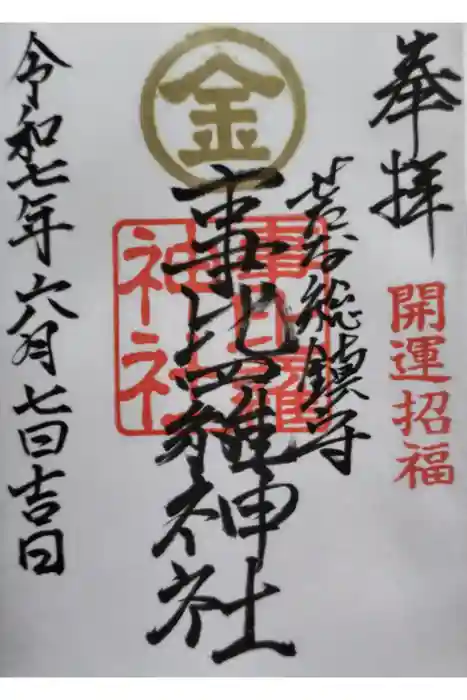 奉拝
開運招福
総鎮守
金
事比羅神社
事比羅
神社
令和七年六月七日吉日